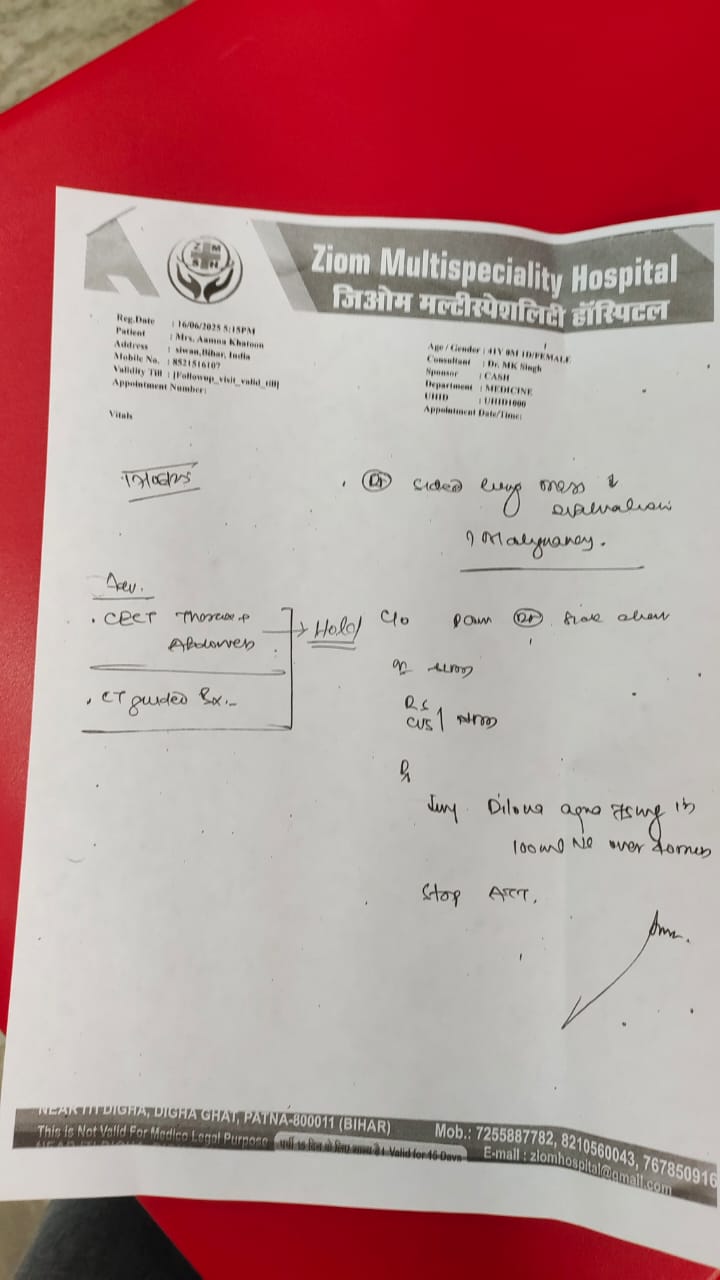 Ziom Multispeciality Hospital
जिओम मल्टीस्पेशलिटी हॉस्पिटल
Reg.Date : 16/06/2025 5:15PM
Patient : Mrs. Aamna Khatoon
Address : siwan,Bihar, India
Mobile No. : 8521516107
Validity Till : [Followup_visit_valid_till]
Appointment Number:
Age / Gender : 41Y 0M 1D/FEMALE
Consultant : Dr. MK Singh
Sponsor : CASH
Department : MEDICINE
UHID : UHID1000
Appointment Date/Time:
Vitals
17/06/25
Rt sided lung mass
evaluation
? Malignancy.
Adv.
. CECT Thorax +
Abdomen
→ Hold
. CT guided Bx.
C/o Pain Rt side chest
RS
CVS
Rx
Inj. Dilona aqua 75mg in
100ml NS over
Stop ATT.
NEAR ITI DIGHA, DIGHA GHAT, PATNA-800011 (BIHAR)
Mob.: 7255887782, 8210560043, 767850916
This is Not Valid For Medico Legal Purpose
Valid for 15 Days
E-mail : ziomhospital@gmail.com